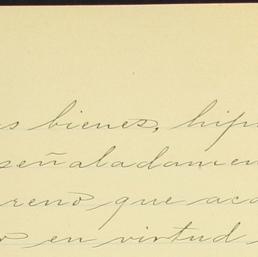 s bienes, hip
señaladamen
reno que aca
o en virtud